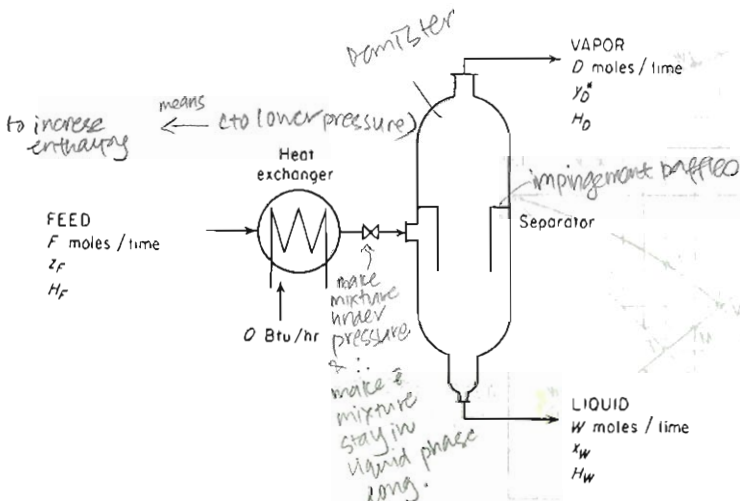 Demister
VAPOR
D moles / time
y_D*
H_D
means
to increase
(to lower pressure)
Heat
exchanger
impingement baffles
Separator
FEED
F moles / time
z_F
H_F
make
mixture
under
pressure
& ∴
make
mixture
stay in
liquid phase
long.
Q Btu/hr
LIQUID
W moles / time
x_W
H_W